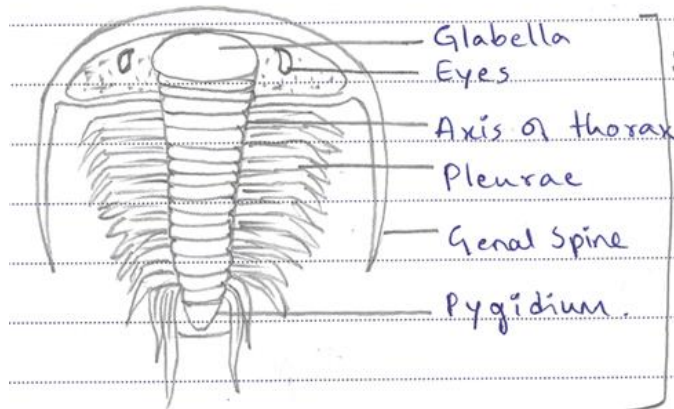 Glabella
Eyes
Axis of thorax
Pleurae
Genal Spine
Pygidium.